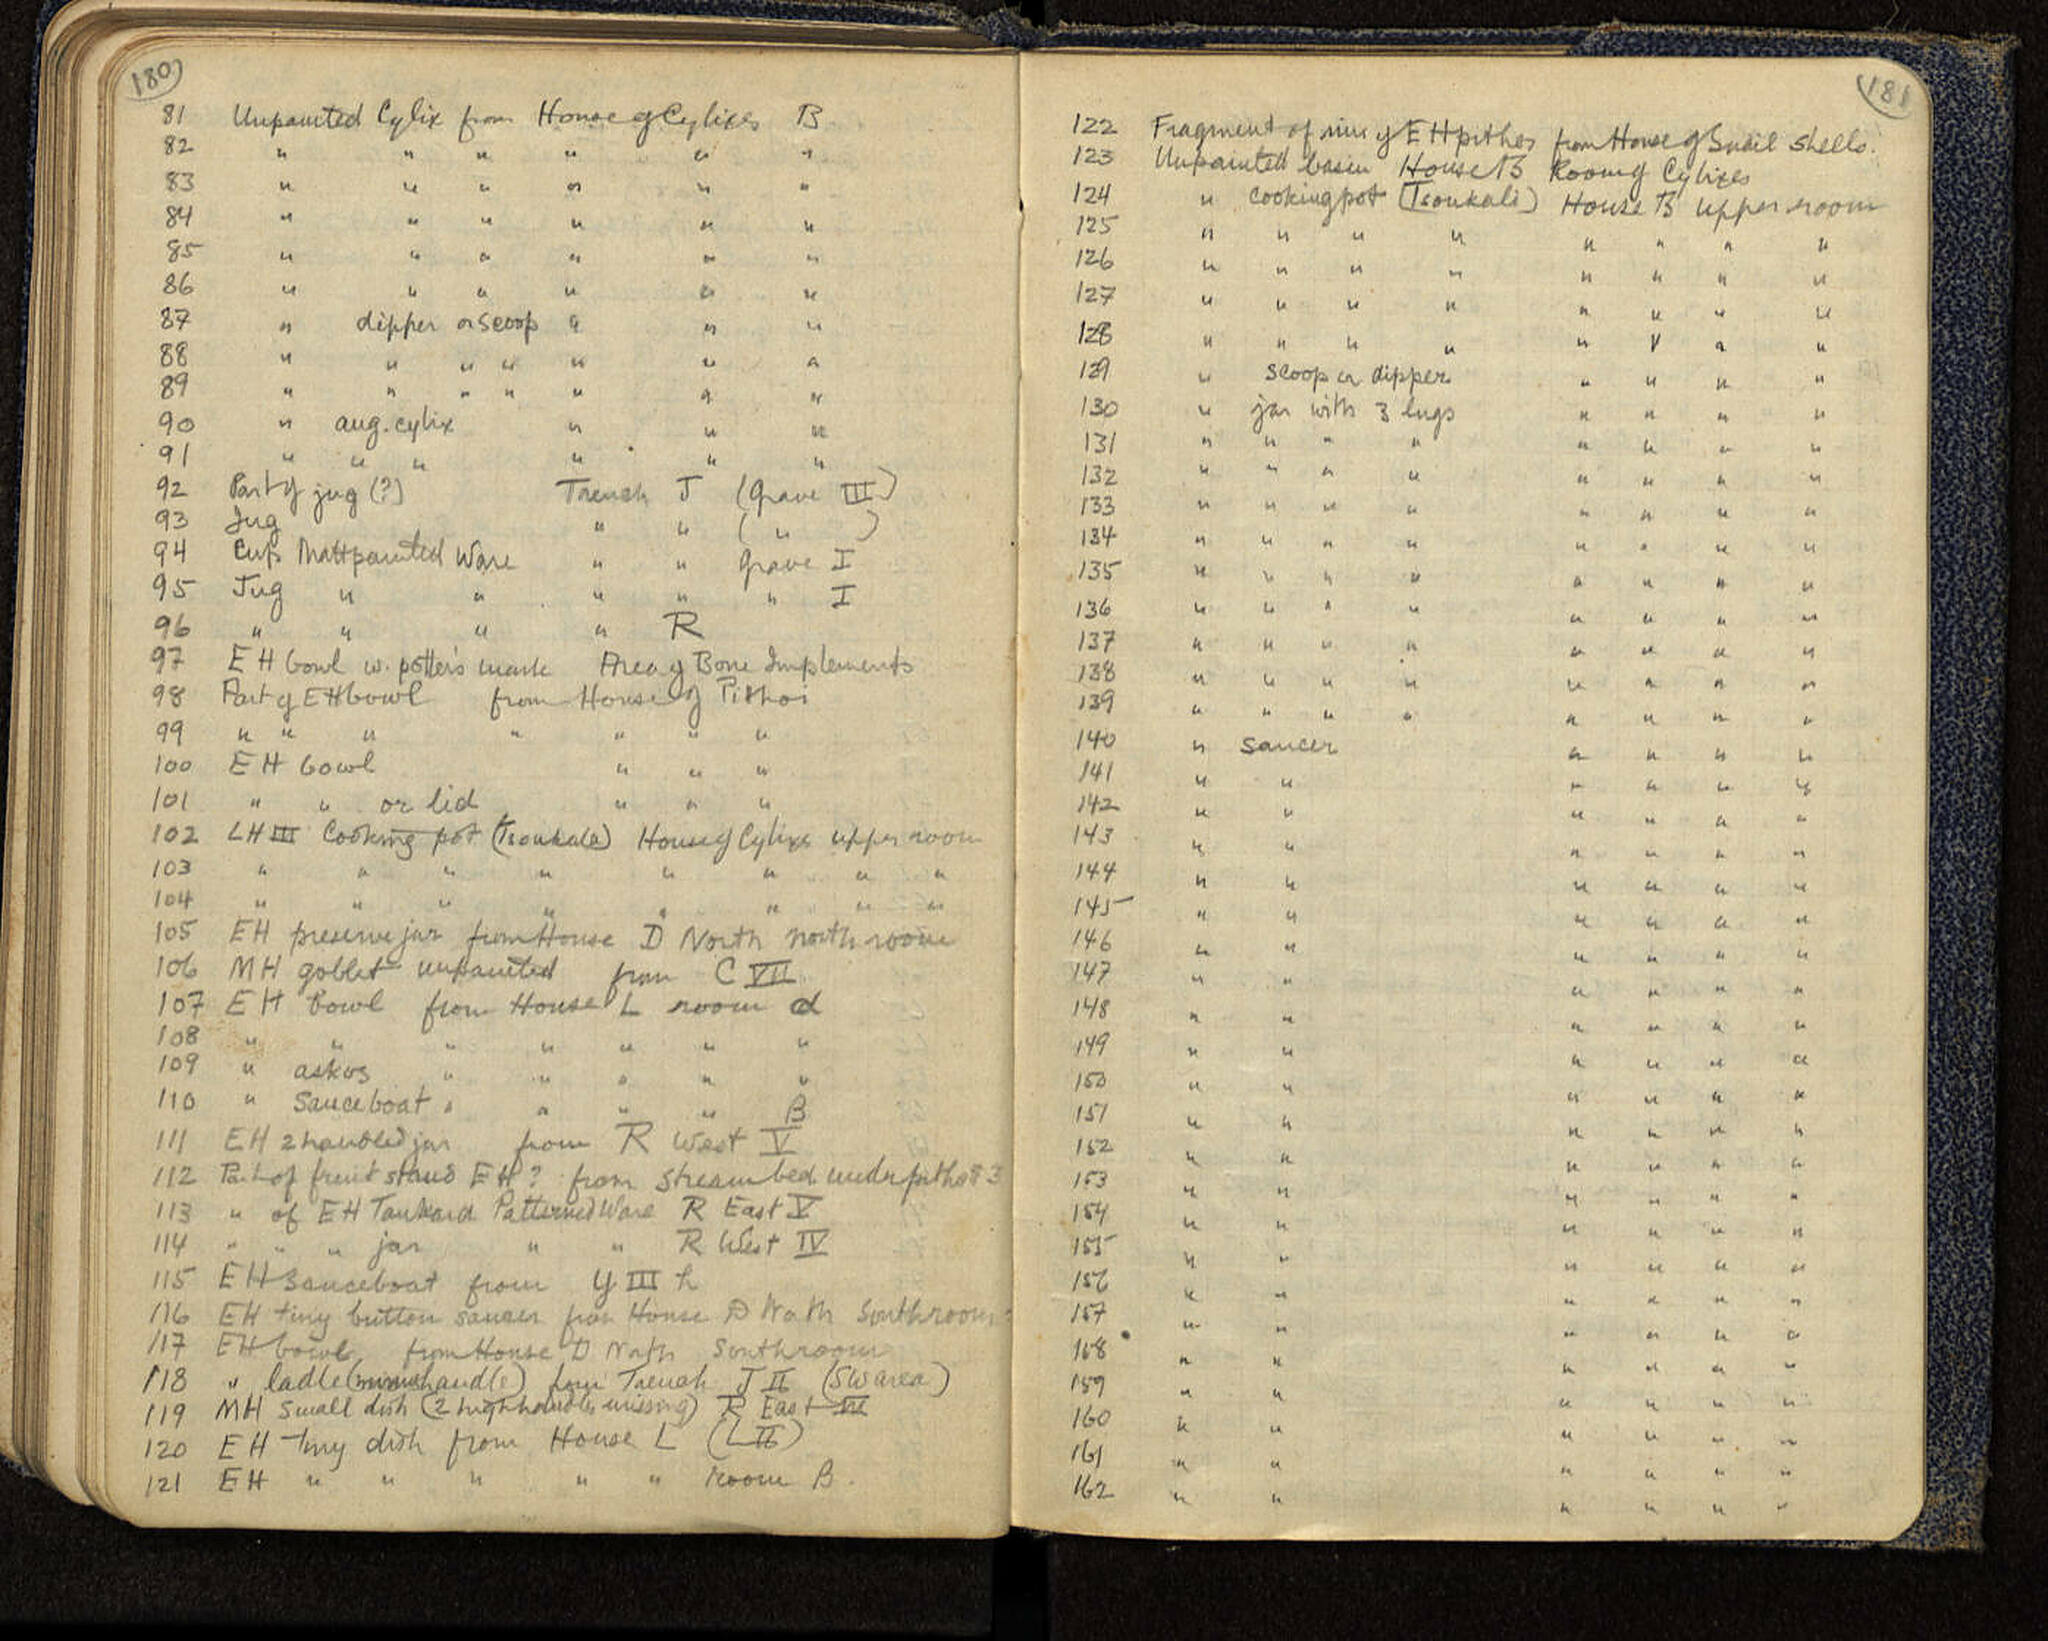 180
81 Unpainted Cylix from House of Cylixes B
82 " " " " " "
83 " " " " " "
84 " " " " " "
85 " " " " " "
86 " " " " " "
87 " dipper or scoop " " "
88 " " " " " " "
89 " " " " " " "
90 " aug. cylix " " "
91 " " " " " "
92 Part of jug (?) Trench J (Grave III)
93 Jug " " ( " )
94 Cup Mattpainted Ware " " Grave I
95 Jug " " " " " I
96 " " " " R
97 EH bowl w. potter's mark Area of Bone Implements
98 Part of EH bowl from House of Pithoi
99 " " " " " " "
100 EH bowl " " "
101 " " or lid " " "
102 LH III Cooking pot (Tsoukala) House of Cylixes upper room
103 " " " " " " " "
104 " " " " " " " "
105 EH preserve jar from House D North north room
106 MH goblet unpainted from C VII
107 EH Bowl from House L room d
108 " " " " " " "
109 " askos " " " " "
110 " Sauceboat " " " " B
111 EH 2 handled jar from R West V
112 Part of fruit stand EH? from stream bed under pithos 3
113 " of EH Tankard Patterned Ware R East V
114 " " " jar " " R West IV
115 EH Sauceboat from Y III h
116 EH tiny button saucer from House D North South room
117 EH bowl from House D North South room
118 " ladle (minus handle) from Trench J II (SW area)
119 MH Small dish (2 high handles missing) R East
120 EH Tiny dish from House L (L II)
121 EH " " " " " Room B.
181
122 Fragment of rim of EH pithos from House of Snail Shells.
123 Unpainted basin House B Room of Cylixes
124 " cooking pot (Tsoukali) House B upper room
125 " " " " " " " "
126 " " " " " " " "
127 " " " " " " " "
128 " " " " " " " "
129 " scoop or dipper " " " "
130 " jar with 3 lugs " " " "
131 " " " " " " " "
132 " " " " " " " "
133 " " " " " " " "
134 " " " " " " " "
135 " " " " " " " "
136 " " " " " " " "
137 " " " " " " " "
138 " " " " " " " "
139 " " " " " " " "
140 " saucer " " " "
141 " " " " " "
142 " " " " " "
143 " " " " " "
144 " " " " " "
145 " " " " " "
146 " " " " " "
147 " " " " " "
148 " " " " " "
149 " " " " " "
150 " " " " " "
151 " " " " " "
152 " " " " " "
153 " " " " " "
154 " " " " " "
155 " " " " " "
156 " " " " " "
157 " " " " " "
158 " " " " " "
159 " " " " " "
160 " " " " " "
161 " " " " " "
162 " " " " " "